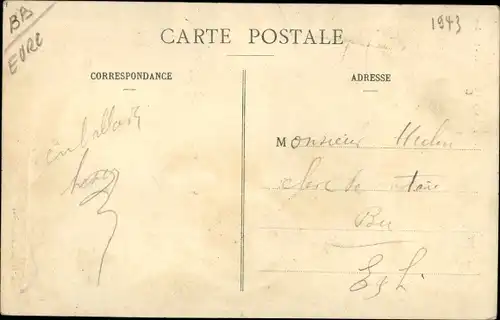 BB
EURE
1943
CARTE POSTALE
CORRESPONDANCE
ADRESSE
Monsieur
clerc de notaire
Bu
E & L.